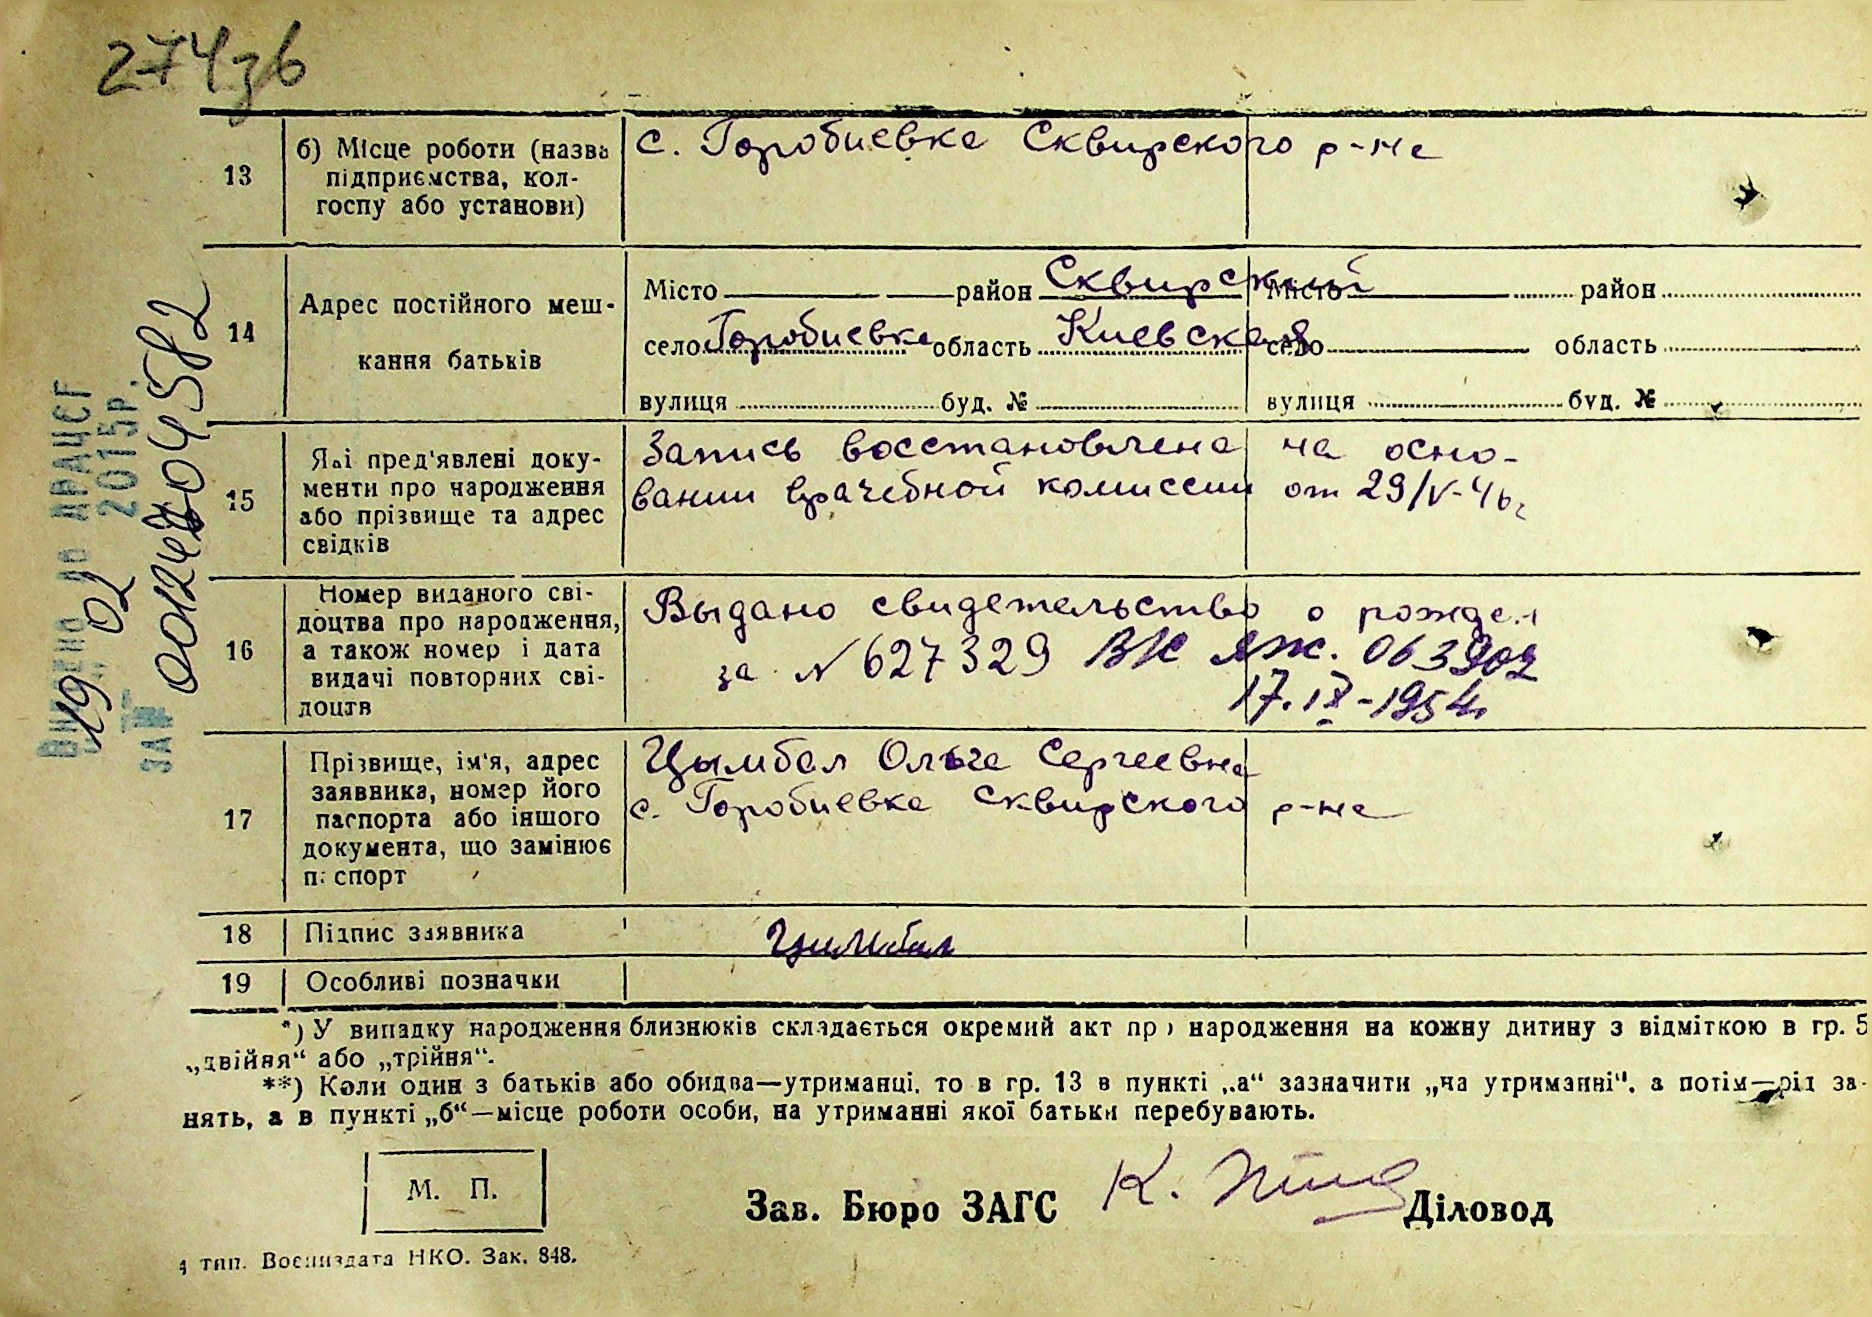 274зв
13
б) Місце роботи (назва
підприємства, кол-
госпу або установи)
с. Горобиевка Сквирского р-на
14
Адрес постійного меш-
кання батьків
Місто район Сквирский Місто район
село Горобиевка область Киевская село область
вулиця буд. № вулиця буд. №
15
Які пред'явлені доку-
менти про народження
або прізвище та адрес
свідків
Запись восстановлена на осно-
вании врачебной комиссии от 29/V-46г
16
Номер виданого сві-
доцтва про народження,
а також номер і дата
видачі повторних сві-
доцтв
Выдано свидетельство о рожден
за N 627329 ЯЖ. 063902
17.IX-1954г
17
Прізвище, ім'я, адрес
заявника, номер його
паспорта або іншого
документа, що замінює
паспорт
Цымбал Ольга Сергеевна
с. Горобиевка Сквирского р-на
18
Підпис заявника
Цимбал
19
Особливі позначки
*) У випадку народження близнюків складається окремий акт про народження на кожну дитину з відміткою в гр. 5
„двійня“ або „трійня“.
**) Коли один з батьків або обидва—утриманці, то в гр. 13 в пункті „а“ зазначити „на утриманні“, а потім—рід за-
нять, а в пункті „б“—місце роботи особи, на утриманні якої батьки перебувають.
М. П.
Зав. Бюро ЗАГС К. Діловод
4 тип. Воениздата НКО. Зак. 848.
Внесено до ДРАЦСГ
19. 02 2015р.
ЗА №